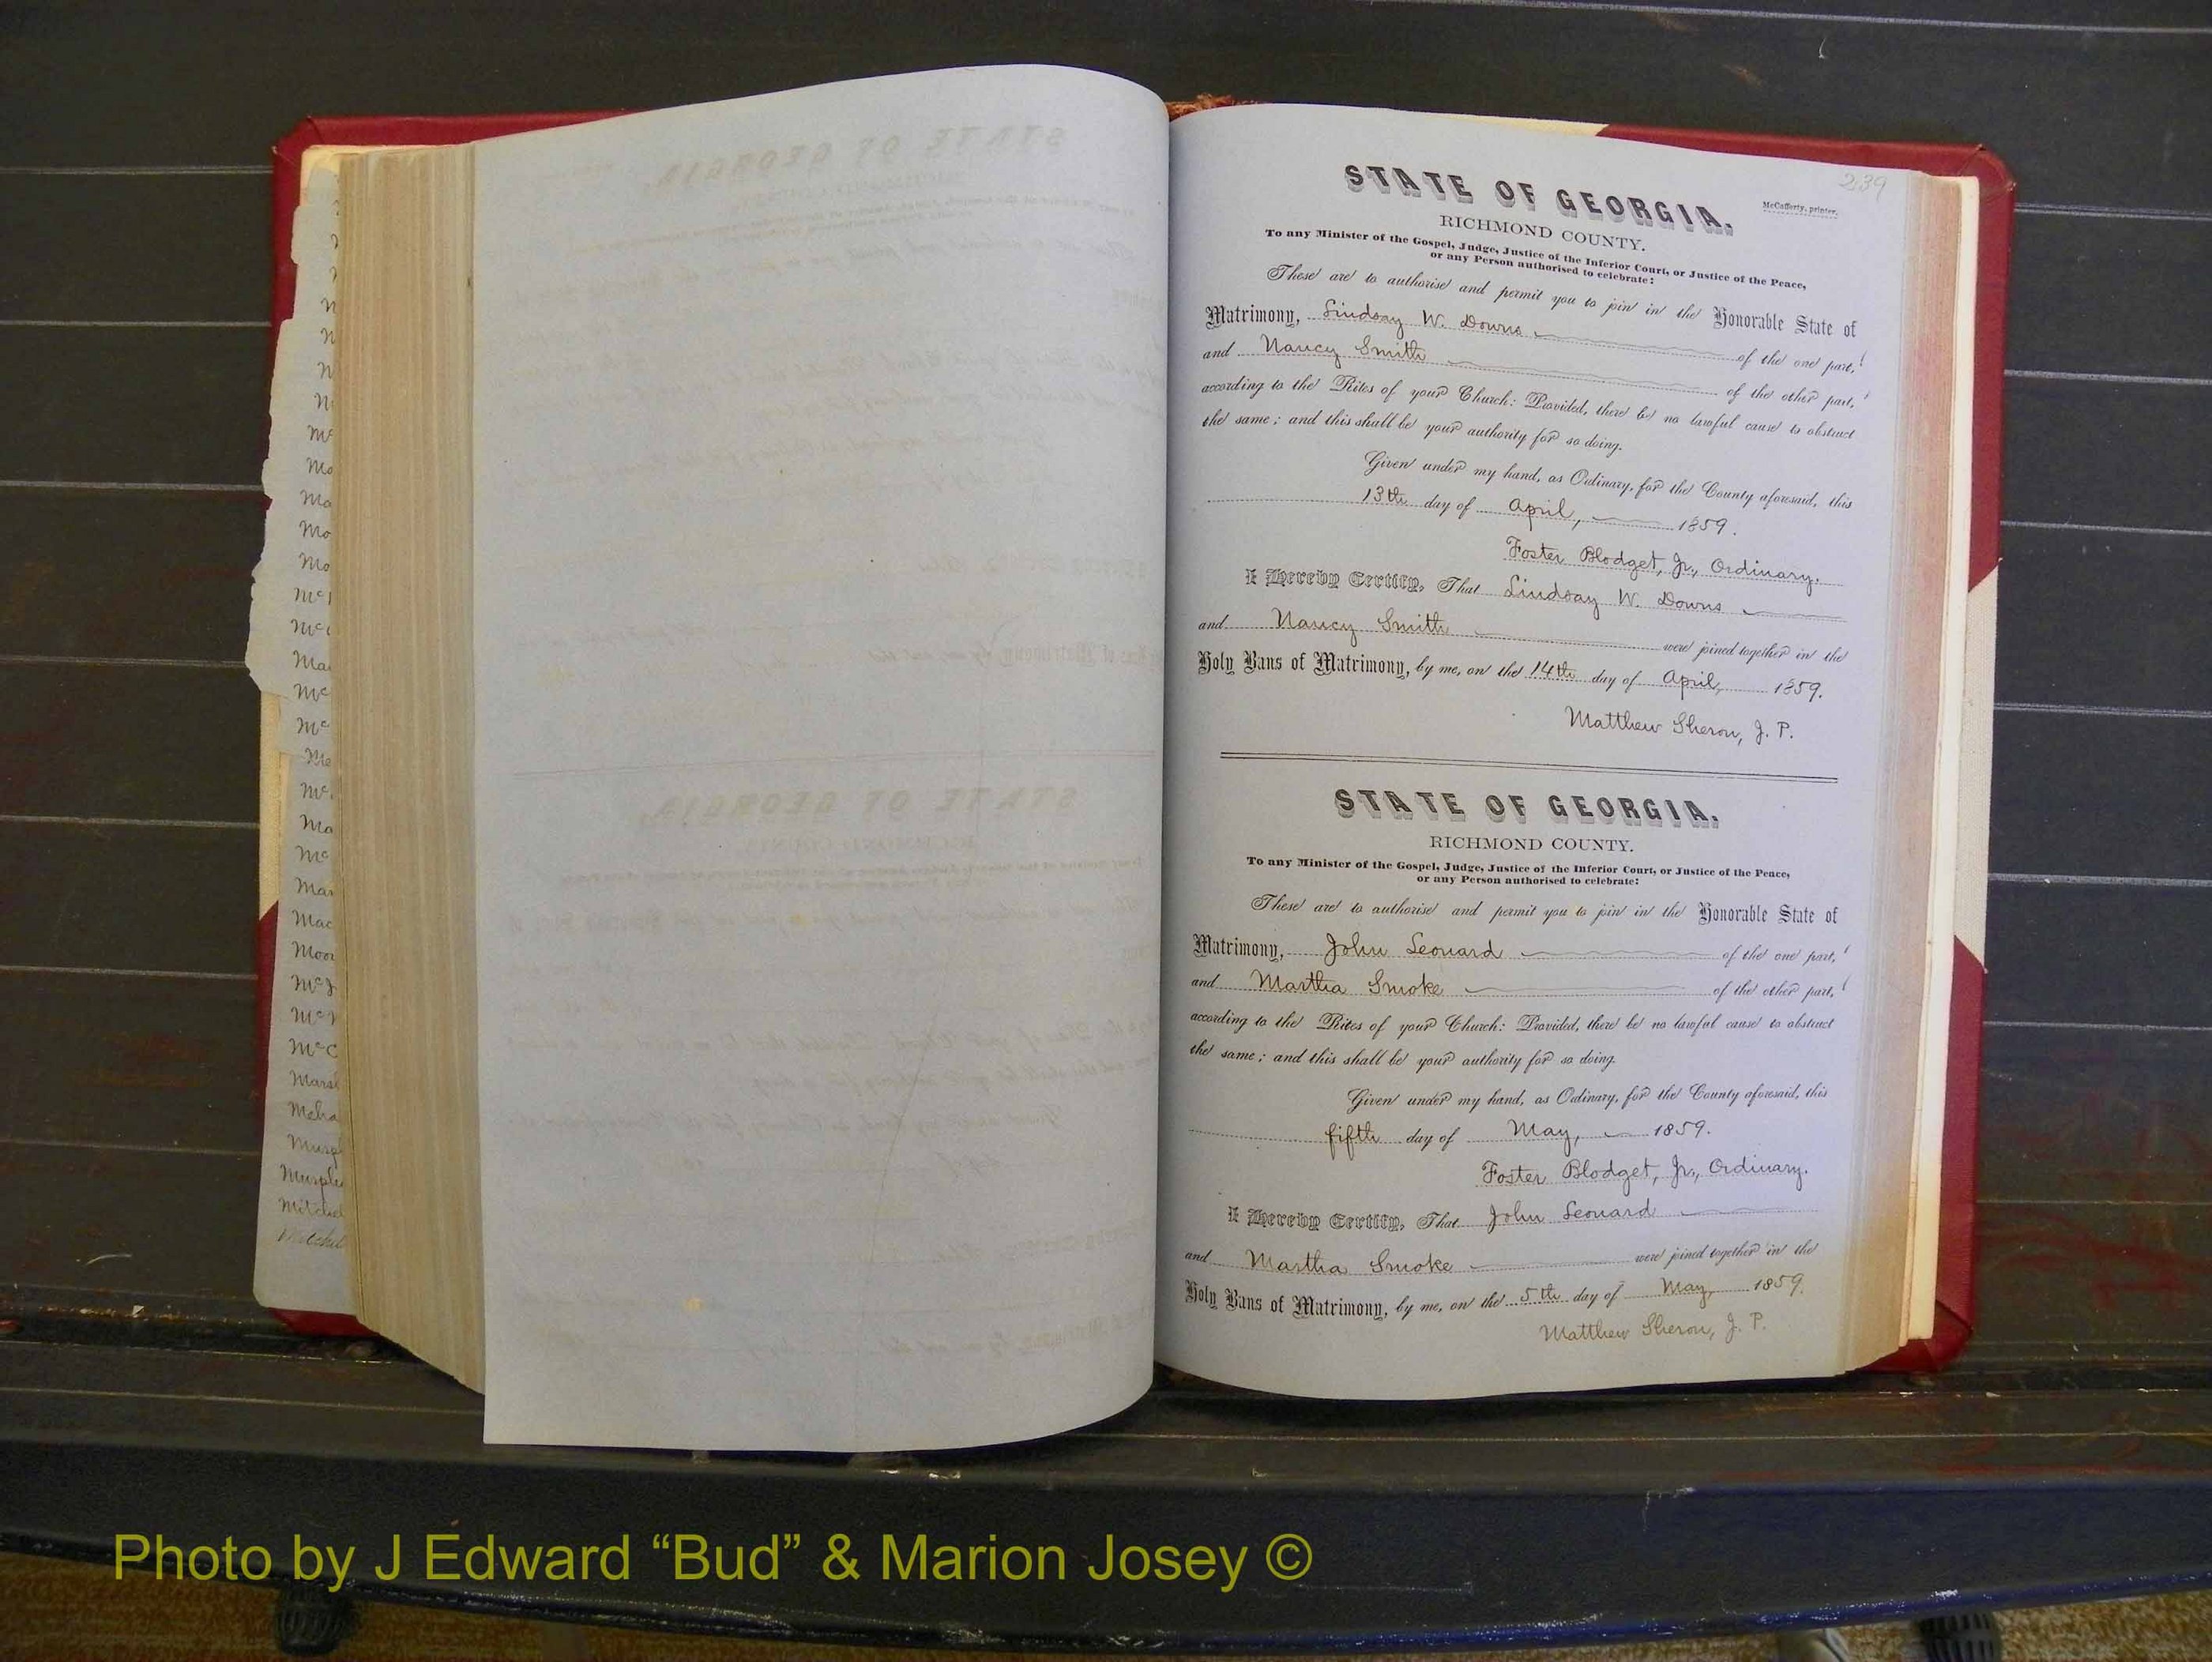 239
STATE OF GEORGIA.
McCafferty, printer.
RICHMOND COUNTY.
To any Minister of the Gospel, Judge, Justice of the Inferior Court, or Justice of the Peace,
or any Person authorised to celebrate:
These are to authorise and permit you to join in the Honorable State of
Matrimony, Lindsay W. Downs of the one part,
and Nancy Smith of the other part,
according to the Rites of your Church: Provided, there be no lawful cause to obstruct
the same; and this shall be your authority for so doing.
Given under my hand, as Ordinary, for the County aforesaid, this
13th day of April, 1859.
Foster Blodget, Jr., Ordinary.
I Hereby Certify, That Lindsay W. Downs
and Nancy Smith were joined together in the
Holy Bans of Matrimony, by me, on the 14th day of April, 1859.
Matthew Sheron, J. P.
STATE OF GEORGIA.
RICHMOND COUNTY.
To any Minister of the Gospel, Judge, Justice of the Inferior Court, or Justice of the Peace,
or any Person authorised to celebrate:
These are to authorise and permit you to join in the Honorable State of
Matrimony, John Leonard of the one part,
and Martha Smoke of the other part,
according to the Rites of your Church: Provided, there be no lawful cause to obstruct
the same; and this shall be your authority for so doing.
Given under my hand, as Ordinary, for the County aforesaid, this
fifth day of May, 1859.
Foster Blodget, Jr., Ordinary.
I Hereby Certify, That John Leonard
and Martha Smoke were joined together in the
Holy Bans of Matrimony, by me, on the 5th day of May, 1859.
Matthew Sheron, J. P.
Photo by J Edward “Bud” & Marion Josey ©